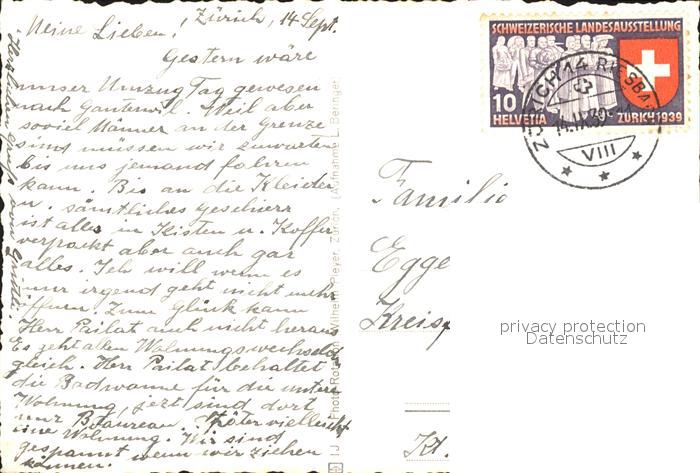 Zürich, 14 Sept.
Meine Lieben!
Gestern wäre
unser Umzug Tag gewesen
nach Ganterwil. Weil aber
soviel Männer an der Grenze
sind müssen wir zuwarten
bis uns jemand fahren
kann. Bis an die Kleider
u. sämtliches Geschierr
ist alles in Kisten u. Koffer
verpackt aber auch gar
alles. Ich will wenn es
nur irgend geht nicht mehr
öffnen. Zum Glück kann
Herr Pailat auch nicht heraus
Es geht allen Wohnungswechseln
gleich. Herr Pailat behaltet
die Badwanne für die untere
Wohnung, jezt sind dort
nur Büaureau. Später vielleicht
eine Wohnung. Wir sind
gespannt wenn wir ziehen
können.
Photo Rotar Wilhelm Pleyer, Zürich. (Aufnahme L. Beringer)
SCHWEIZERISCHE LANDESAUSSTELLUNG
10
HELVETIA ZÜRICH 1939
ZÜRICH 14 RIESBA
14.IX.39
VIII
Familie
Egge
Kreis
Kt.
privacy protection
Datenschutz